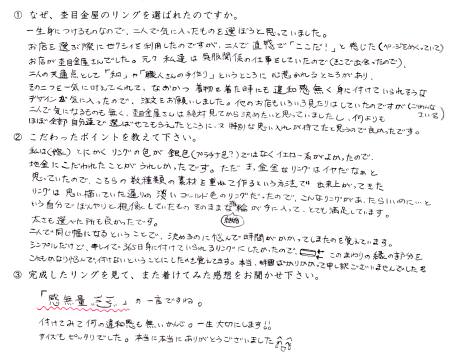 ① なぜ、杢目金屋のリングを選ばれたのですか。
一生身につけるものなので、二人で気に入ったものを選ぼうと思っていました。
お店を選ぶ際にゼクシィを利用したのですが、二人で直感で「ここだ！」と感じた(ページをめくっていて)
お店が杢目金屋さんでした。元々私達は呉服関係の仕事をしていたので(そこで出会ったので)、
二人の共通点として「和」や「職人さんの手作り」というところに心惹かれるところがあり、
その二つを一気に叶えてくれて、なおかつ着物を着た時にも違和感無く身に付けていられそうな
デザインが気に入ったので、注文をお願いしました。他のお店もいろいろ見たりはしていたのですが(ごめんなさい笑)
二人で気になるものも無く、杢目金屋さんは絶対見てから決めたいと思っていましたし、何よりも
ほぼ全部自分達で選ばせてもらえたところに、又特別な思い入れが持てたと思うので良かったです。
② こだわったポイントを教えて下さい。
私は(嫁)とにかくリングの色が銀色(プラチナ色？)ではなくイエロー系がよかったので、
地金にこだわれたことがうれしかったです。ただ、金、金なリングはイヤだなぁと
思っていたので、こちらの数種類の素材を重ねて作るという方法で出来上がってきた
リングは思い描いていた通りの淡いゴールドものリングだったので、こんなリングがあったらいいのに…と
いう自分でぼんやりと想像していたものそのままな輪が手に入って、とても満足しています。
太さも選べた所も良かったです。
二人で同じ幅になるということで、決めるのに悩んで時間がかかってしまったのを覚えています。
シンプルだけど、キレイで365日身に付けていられるリングにしたかったので、このまわりの縁の部分を
③ 完成したリングを見て、また着けてみた感想をお聞かせ下さい。
「感無量」の一言ですね。
付けてみて何の違和感も無いかんじ。一生大切にします!!
サイズもピッタリでした。本当に本当にありがとうございました